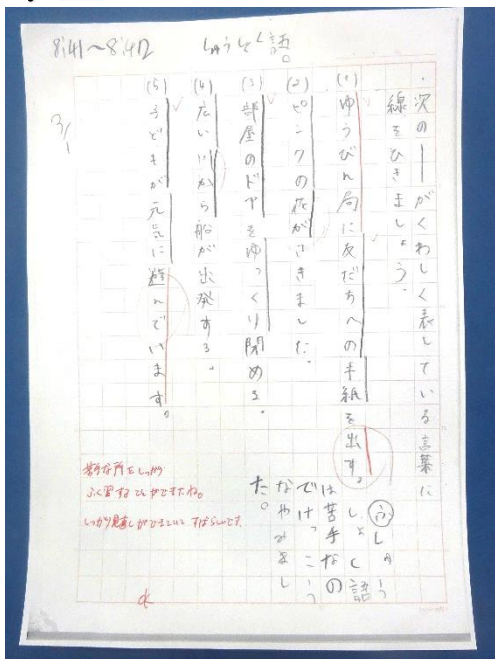 8:41〜8:42
しゅうしょく語。
・次の―がくわしく表している言葉に
線をひきましょう。
(1) ゆうびん局に友だちへの手紙を出す。
(2) ピンクの花がさきました。
(3) 部屋のドアをゆっくり閉める。
(4) 広い川から船が出発する。
(5) 子どもが元気に遊んでいます。
3/1
ふ しゅう
しょく語
は苦手なの
でけっこう
なやみまし
た。
苦手な所をしっかり
ふく習することができたね。
しっかり見直しができていて すばらしいです。